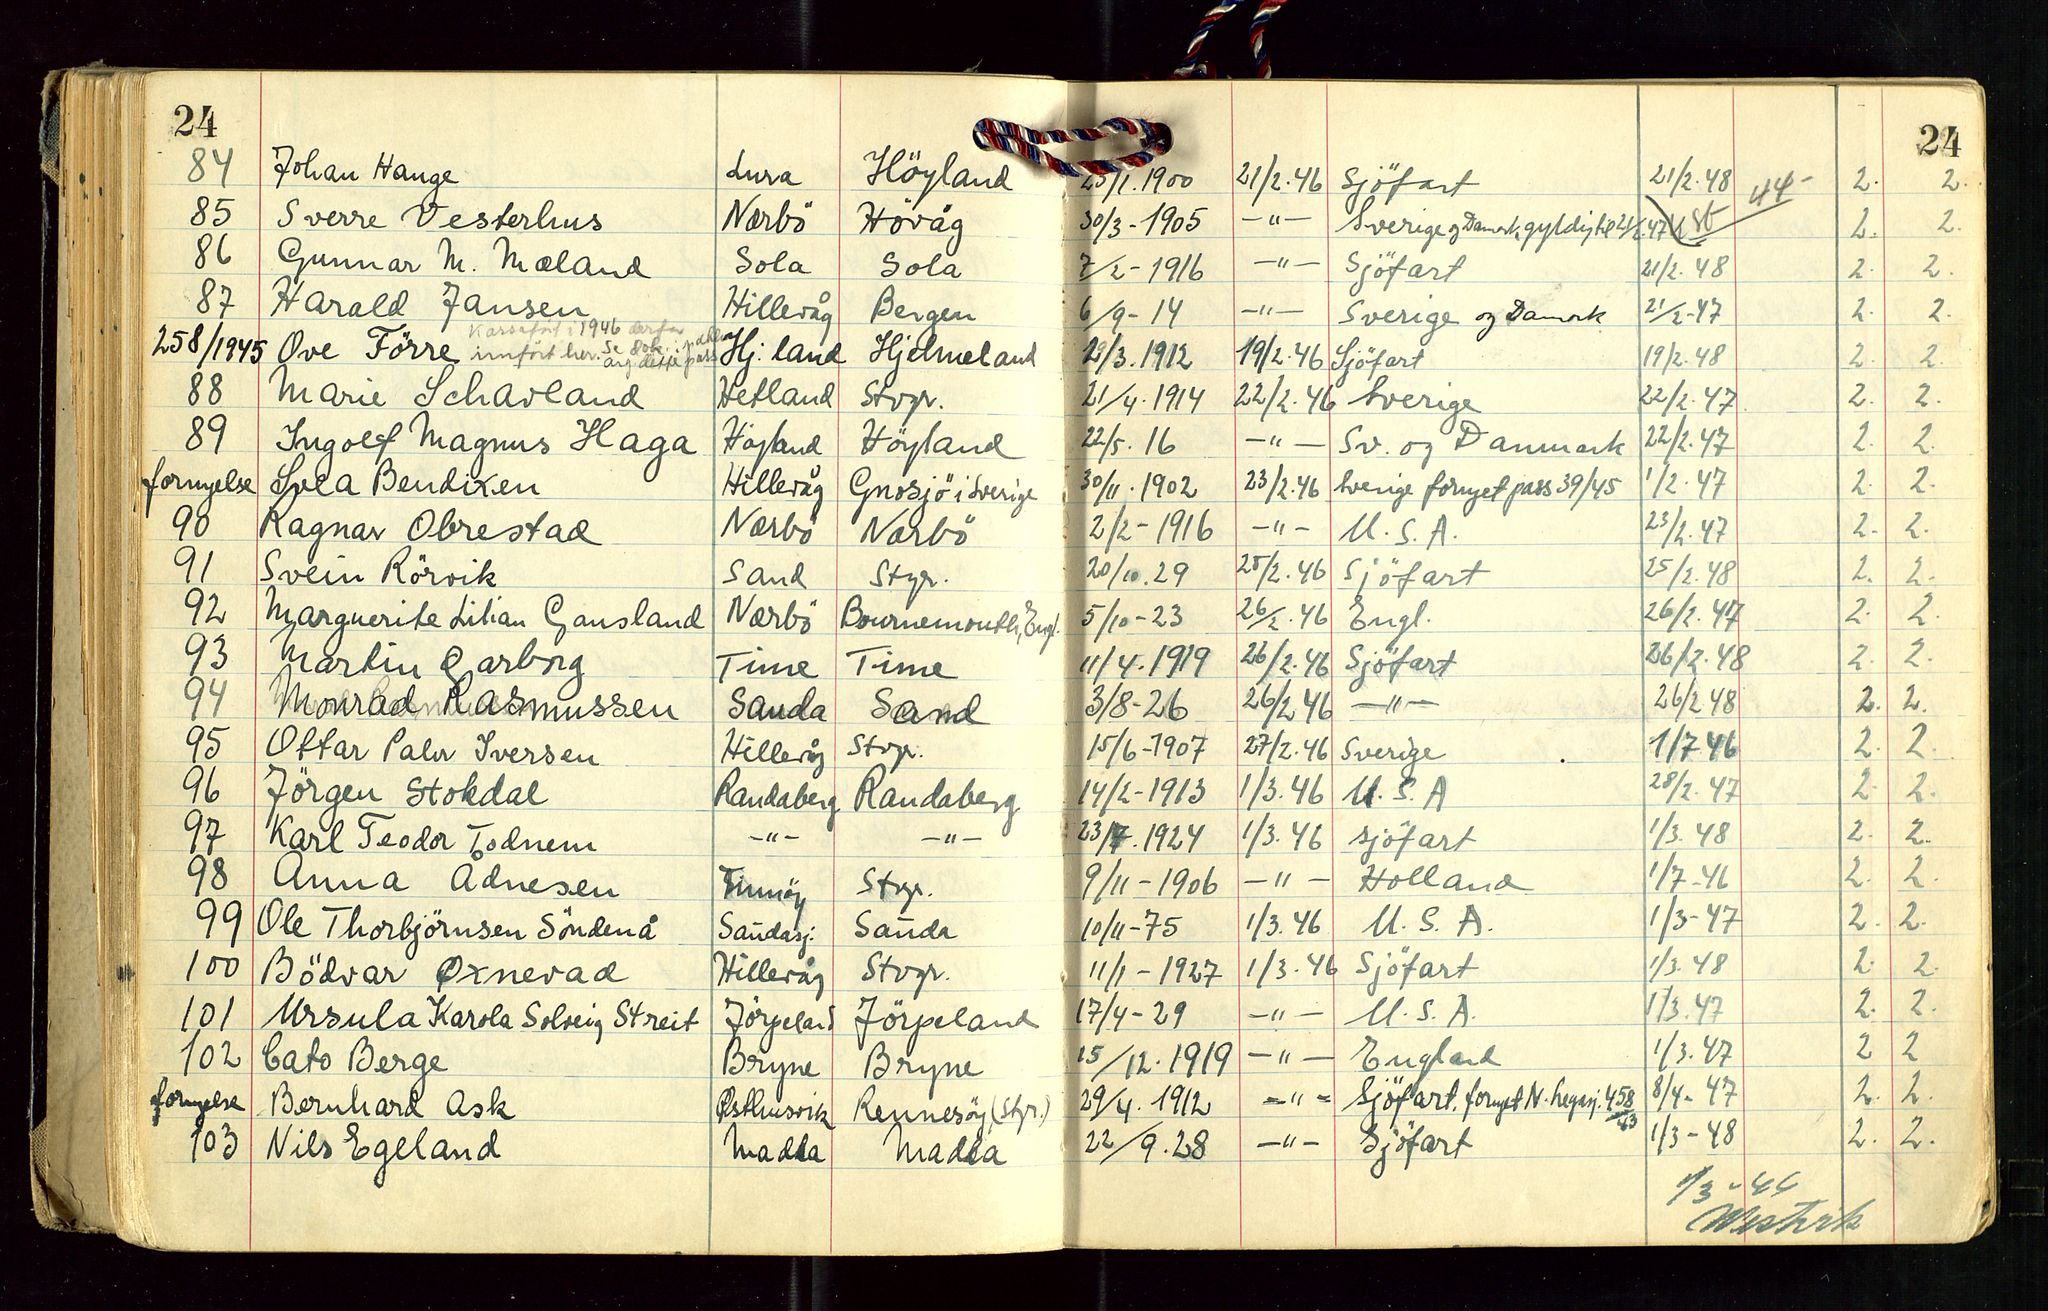 24 24
84 Johan Hauge Lura Höyland 25/1.1900 21/2.46 Sjöfart 21/2.48 44- 2. 2.
85 Sverre Vesterhus Nærbö Hövåg 30/3-1905 -"- Sverige og Danmark, gyldig til 21/2.47 2. 2.
86 Gunnar M. Mæland Sola Sola 7/2-1916 -"- Sjöfart 21/2.48 2. 2.
87 Harald Jansen Hillevåg Bergen 6/9-14 -"- Sverige og Danmark 21/2-47 2. 2.
Kasseført i 1946 derfor
258/1945 Ove Förre innført her. Se Hj:land Hjelmeland 29/3.1912 19/2.46 Sjöfart 19/2.48 2. 2.
88 Marie Schavland Hetland Stvgr. 21/4.1914 22/2.46 Sverige 22/2.47 2. 2.
89 Ingolf Magnus Haga Höyland Höyland 22/5.16 -"- Sv. og Danmark 22/2.47 2. 2.
fornyelse Svea Bendixen Hillevåg Gnosjö i Sverige 30/11.1902 23/2.46 Sverige fornyet pass 39/45 1/2.47 2. 2.
90 Ragnar Obrestad Nærbö Nærbö 2/2-1916 -"- U.S.A. 23/2.47 2. 2.
91 Svein Rörvik Sand Stvgr. 20/10.29 25/2.46 Sjöfart 25/2.48 2. 2.
92 Marguerite Lilian Gausland Nærbö Bournemouth, Engl. 5/10-23 26/2.46 Engl. 26/2.47 2. 2.
93 Martin Garborg Time Time 11/4.1919 26/2.46 Sjöfart 26/2.48 2. 2.
94 Monrad Rasmussen Sauda Sand 3/8-26 26/2 46 -"- 26/2 48 2. 2.
95 Ottar Palm Iversen Hillevåg Stvgr. 15/6-1907 27/2.46 Sverige 1/7 46 2. 2.
96 Jörgen Stokdal Randaberg Randaberg 14/2-1913 1/3.46 U.S.A 28/2.47 2. 2.
97 Karl Teodor Todnem -"- -"- 23/7.1924 1/3.46 sjöfart 1/3.48 2. 2.
98 Anna Ådnesen Finnöy Stvgr. 9/11-1906 -"- Holland 1/7-46 2. 2.
99 Ole Thorbjörnsen Söndenå Saudasj. Sauda 10/11-75 1/3.46 U.S.A. 1/3-47 2. 2.
100 Bödvar Øxnevad Hillevåg Stvgr. 11/1-1927 1/3.46 Sjöfart 1/3.48 2. 2.
101 Ursula Karola Solveig Streit Jörpeland Jörpeland 17/4-29 -"- U.S.A. 1/3.47 2. 2.
102 Cato Berge Bryne Bryne 15/12.1919 -"- England 1/3.47 2 2
fornyelse Bernhard Ask Østhusvik Rennesöy (Stgr.) 29/4.1912 -"- Sjöfart, fornyet N. 458/43 8/4-47 2. 2.
103 Nils Egeland Madla Madla 22/9.28 -"- Sjöfart 1/3-48 2. 2.
1/3-46